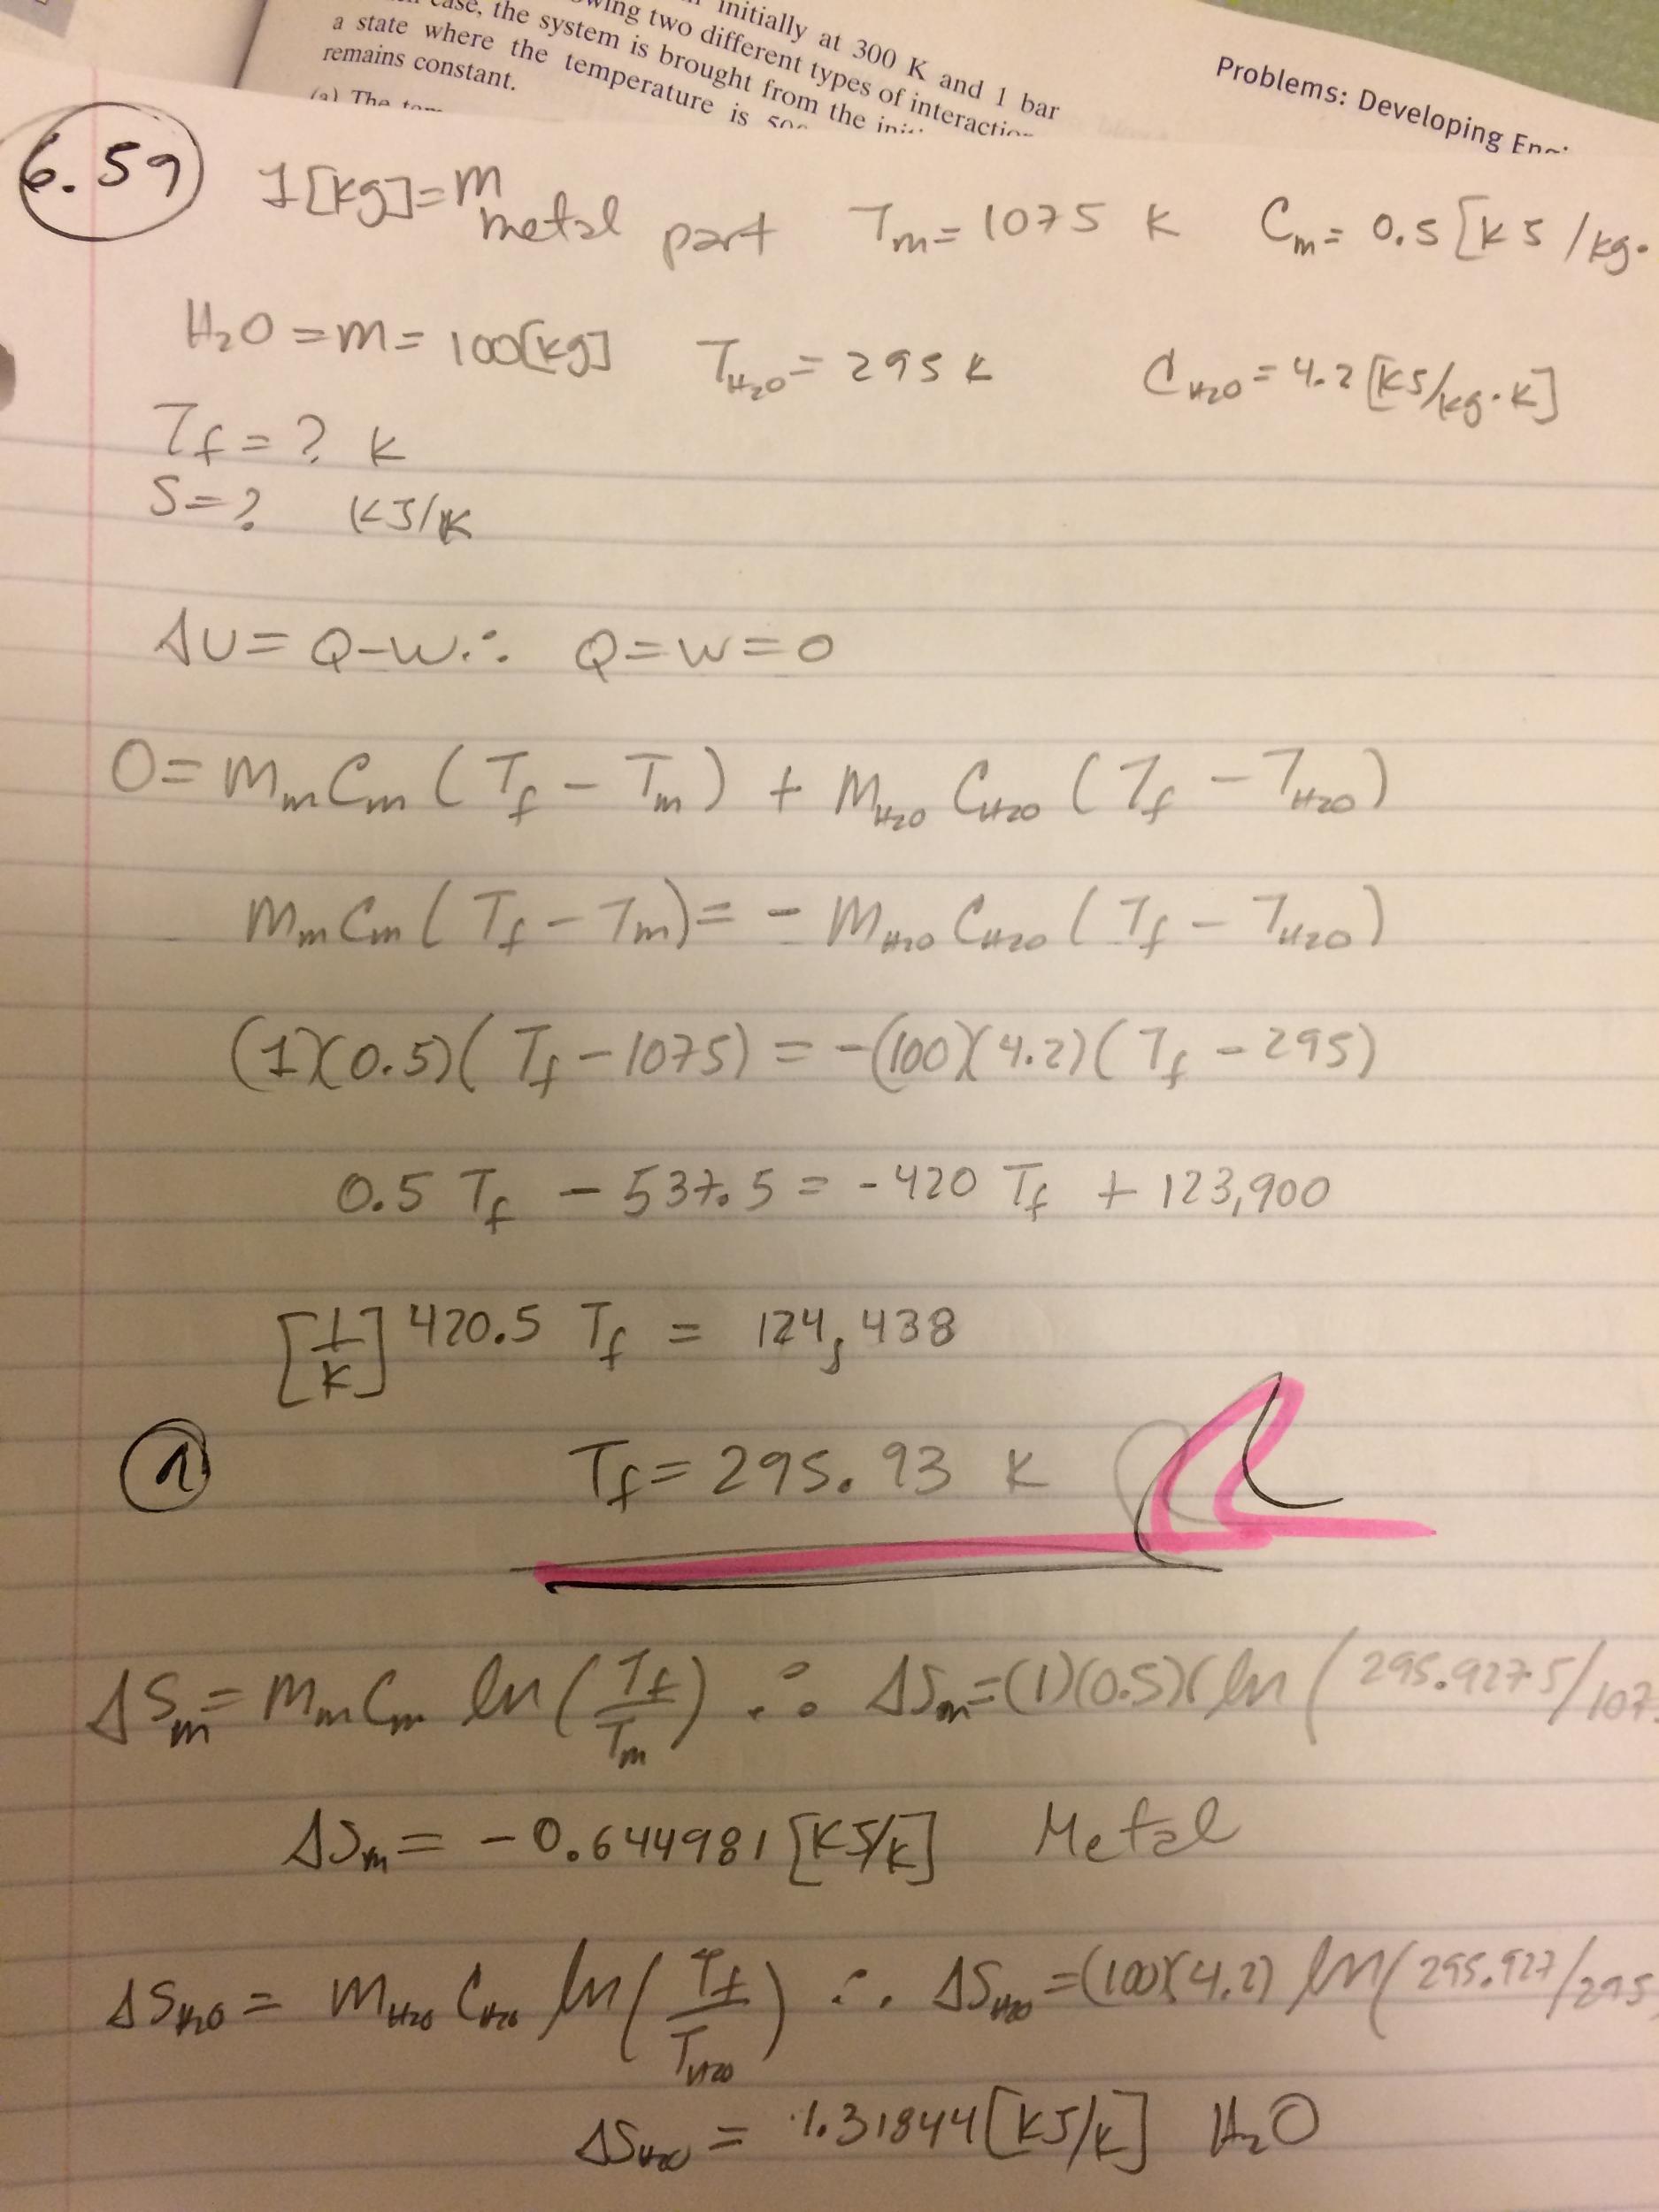 initially at 300 K and 1 bar
owing two different types of interaction
case, the system is brought from the
a state where the temperature is
remains constant.
(a) The
Problems: Developing
6.59
1[kg]=m metal part Tm=1075 K Cm= 0.5[kJ/kg.
H2O=m=100[kg] TH2O=295 K CH2O=4.2[kJ/kg·K]
Tf=? K
S=? kJ/K
ΔU=Q-W∴ Q=W=0
0=MmCm(Tf-Tm)+MH2O CH2O(Tf-TH2O)
MmCm(Tf-Tm)=-MH2O CH2O(Tf-TH2O)
(1)(0.5)(Tf-1075)=-(100)(4.2)(Tf-295)
0.5 Tf - 537.5 = -420 Tf + 123,900
[1/K] 420.5 Tf = 124,438
1 Tf=295.93 K
ΔSm=MmCm ln(Tf/Tm) ∴ ΔSm=(1)(0.5)(ln(295.9275/107
ΔSm=-0.644981[kJ/K] Metal
ΔSH2O=MH2O CH2O ln(Tf/TH2O) ∴ ΔSH2O=(100)(4.2) ln(295.927/295
ΔSH2O=1.31844[kJ/K] H2O